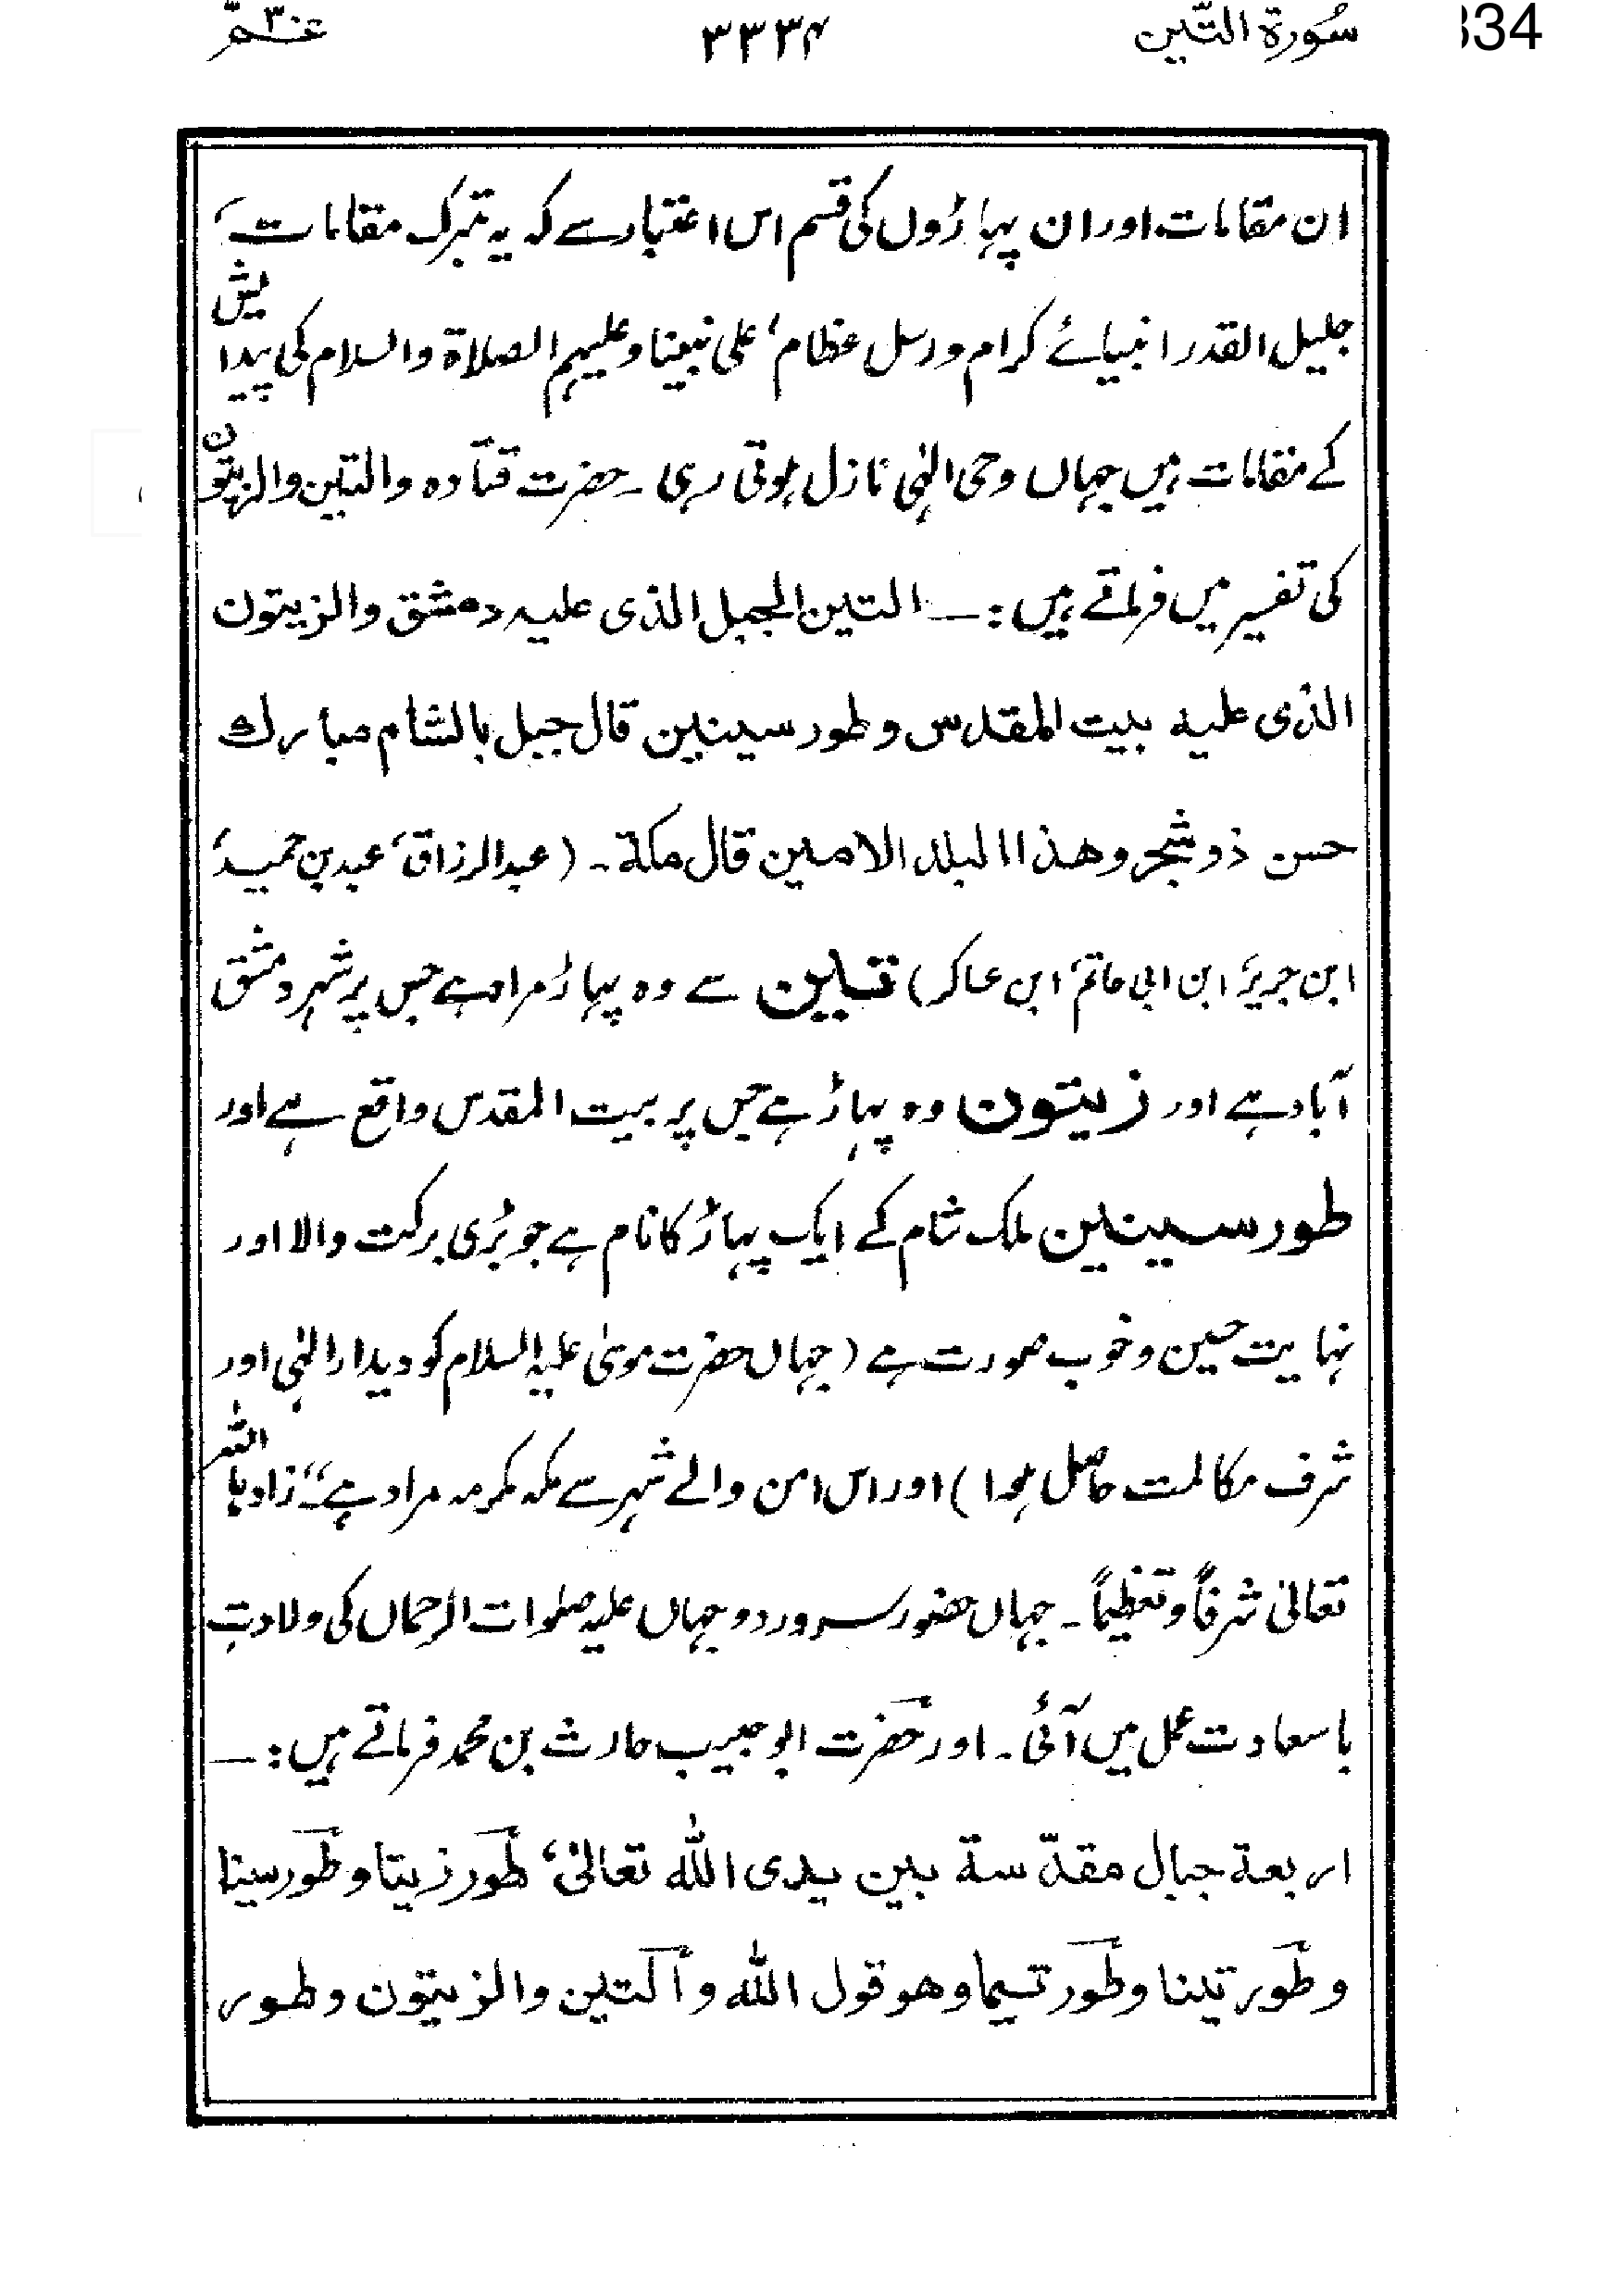 334
سُورة التّين ٣٣٣۴ عـم ٣٠
ان مقامات اور ان پہاڑوں کی قسم اس اعتبار سے کہ یہ تبرک مقامات،
جلیل القدر انبیائے کرام و رسل عظام، علی نبینا وعلیہم الصلاۃ والسلام کی پیدایش
کے مقامات ہیں جہاں وحی الٰہی نازل ہوتی رہی ۔ حضرت قتادہ والتین والزیتون
کی تفسیر میں فرماتے ہیں : ـــ التین الجبل الذی علیہ دمشق والزیتون
الذی علیہ بیت المقدس وطور سینین قال جبل بالشام مبارك
حسن ذو شجر وهذا البلد الامین قال مكة ۔ (عبد الرزاق، عبد بن حمید،
ابن جریر، ابن ابی حاتم، ابن عساکر) تین سے وہ پہاڑ مراد ہے جس پر شہر دمشق
آباد ہے اور زیتون وہ پہاڑ ہے جس پر بیت المقدس واقع ہے اور
طور سینین ملک شام کے ایک پہاڑ کا نام ہے جو بڑی برکت والا اور
نہایت حسین و خوب صورت ہے (جہاں حضرت موسیٰ علیہ السلام کو دیدار الٰہی اور
شرف مکالمت حاصل ہوا) اور اس امن والے شہر سے مکہ مکرمہ مراد ہے‘‘۔ زادہا اللہ
تعالیٰ شرفاً وتعظیماً ۔ جہاں حضور سرور دو جہاں علیہ صلوات الرحمان کی ولادتِ
باسعادت عمل میں آئی ۔ اور حضرت ابو حبیب حارث بن محمد فرماتے ہیں : ـــ
اربعة جبال مقدّسة بین یدی الله تعالیٰ، طور زیتا و طور سینا
و طور تینا و طور تسیما وهو قول الله والتین والزیتون وطور